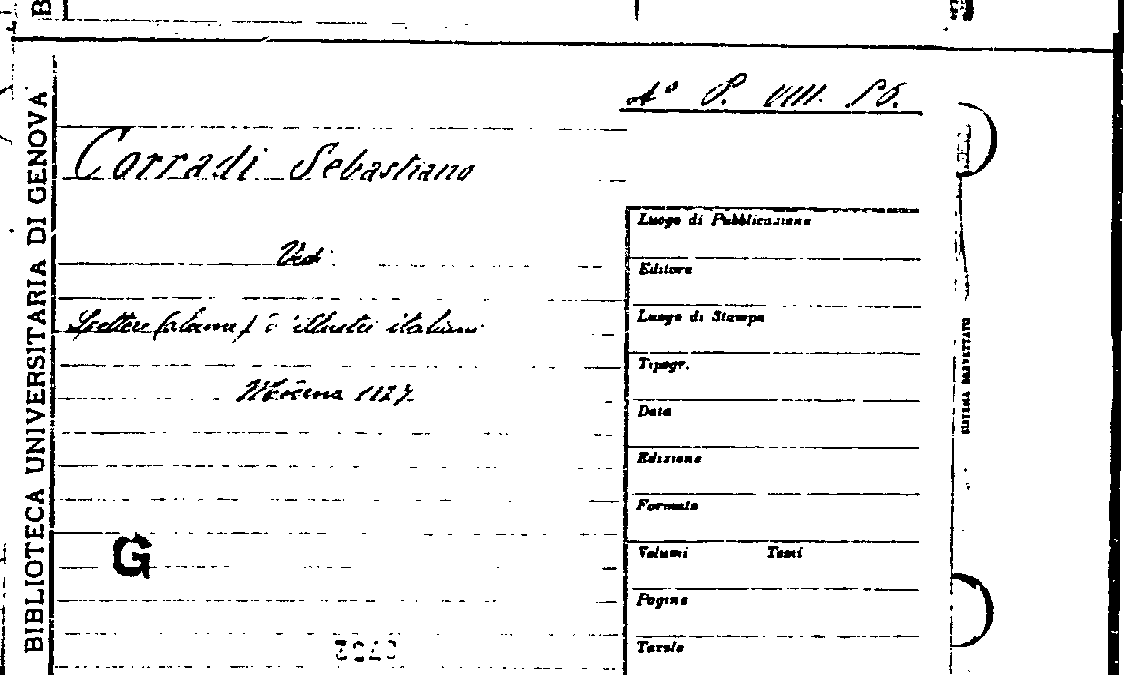 BIBLIOTECA UNIVERSITARIA DI GENOVA
Aº P. VIII. 56.
Corradi Sebastiano
Vedi
Lettere (alcune) d'illustri italiani
Modena 1827.
G
Luogo di Pubblicazione
Editore
Luogo di Stampa
Tipogr.
Data
Edizione
Formato
Volumi Tomi
Pagine
Tavole
SISTEMA BREVETTATO